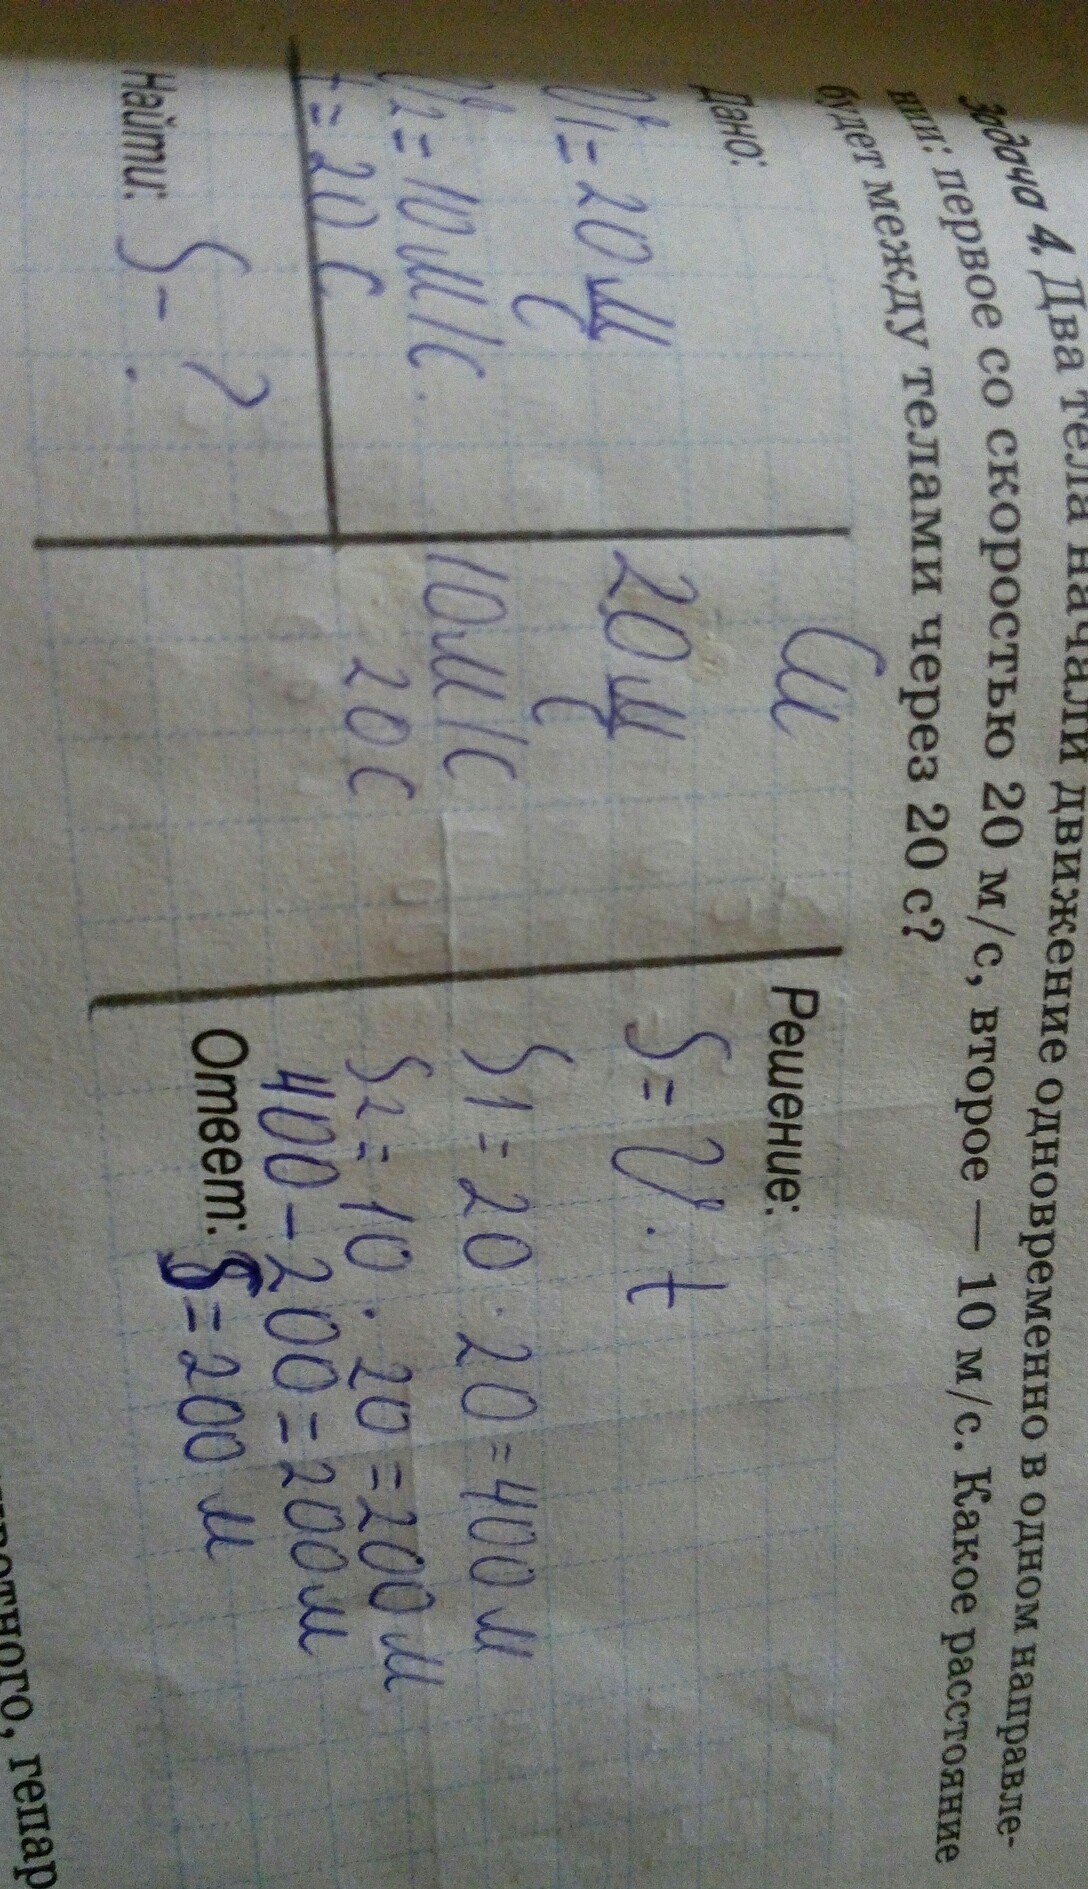 Задача 4. Два тела начали движение одновременно в одном направле-
нии: первое со скоростью 20 м/с, второе — 10 м/с. Какое расстояние
будет между телами через 20 с?
Дано:
V1 = 20 м/с
V2 = 10 м/с.
t = 20 с
Найти: S - ?
Си
20 м/с
10 м/с
20 с
Решение:
S = V · t
S1 = 20 · 20 = 400 м
S2 = 10 · 20 = 200 м
400 - 200 = 200 м
Ответ: S = 200 м
гепар